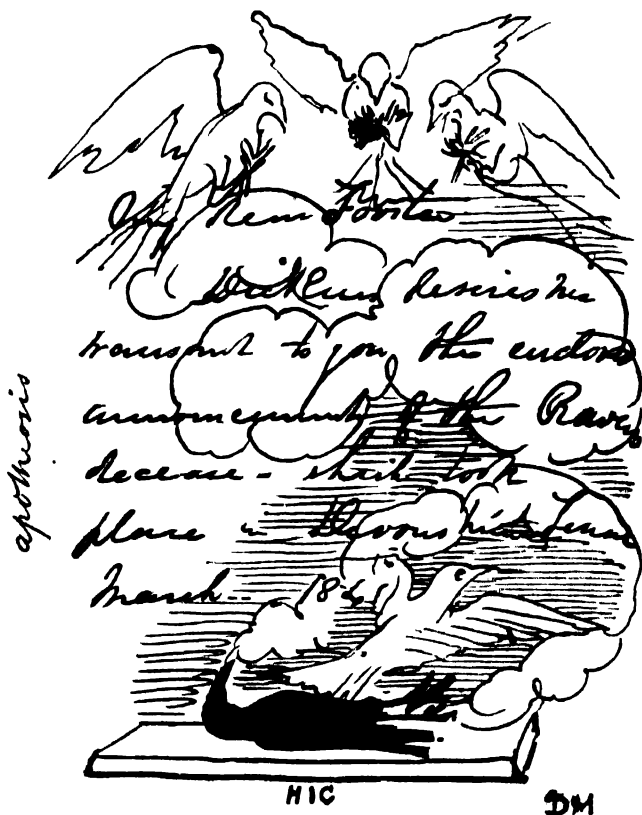 My dear Forster
Dickens desires me
transmit to you the enclosed
announcement of the Raven's
decease - which took
place in Devonshire Terrace
March 
apotheosis
HIC
DM